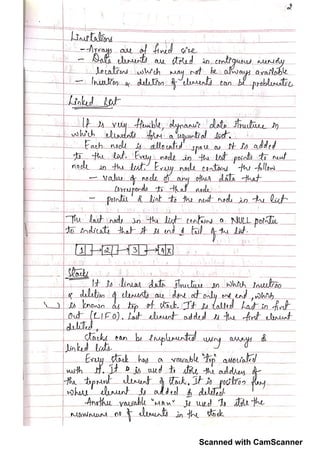 2
Limitations
- Arrays are of fixed size
- Data elements are stored in contiguous memory
locations which may not be always available
- Insertion & deletion of elements can be problematic
Linked List
It is very flexible, dynamic data structure in
which elements form a sequential list.
Each node is allocated space as it is added
to the list. Every node in the list points to next
node in the list. Every node contains the follow
- value of node or any other data that
corresponds to that node
- pointer & link to the next node in the list
The last node in the list contains a NULL pointer
to indicate that it is end & tail of the list.
1 2 3 4 X
Stacks
It is linear data structure in which insertion
& deletion of elements are done at only one end, which
is known as top of stack. It is called Last in first
Out (LIFO). Last element added is the first element
deleted.
Stacks can be implemented using arrays &
linked lists.
Every stack has a variable "top" associated
with it. It is used to store the address of
the topmost element of stack. It is position from
where element is added & deleted
Another variable "MAX" is used to store the
maximum no of elements in the stack.
Scanned with CamScanner